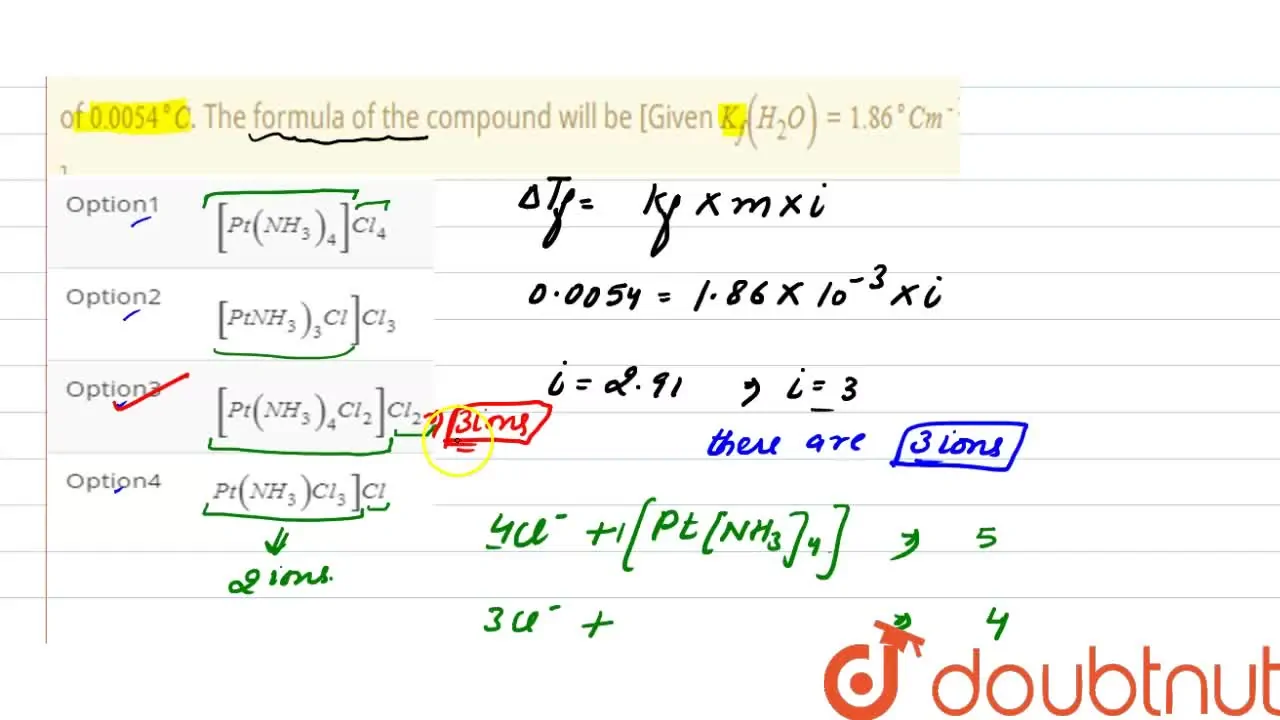 of 0.0054°C. The formula of the compound will be [Given K_f(H_2O) = 1.86°Cm^-
Option1 [Pt(NH_3)_4]Cl_4
ΔTf = kf × m × i
Option2 [PtNH_3)_3Cl]Cl_3
0.0054 = 1.86 × 10^-3 × i
Option3 [Pt(NH_3)_4Cl_2]Cl_2 ⇒ 3 ions
i = 2.91 ⇒ i = 3
there are 3 ions
Option4 Pt(NH_3)Cl_3]Cl
2 ions.
4Cl^- + 1[Pt[NH_3]_4] ⇒ 5
3Cl^- + ⇒ 4
doubtnut